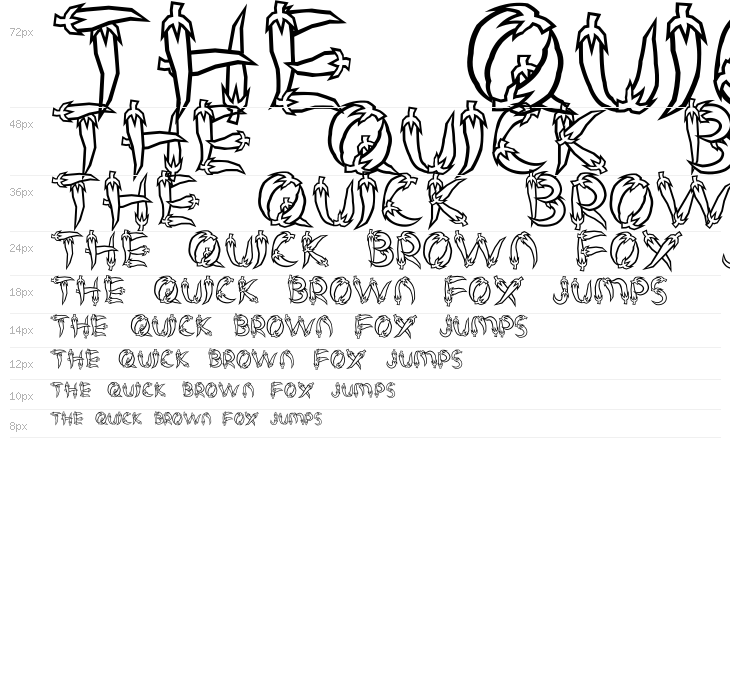 72px THE QUIC
48px THE QUICK B
36px THE QUICK BROW
24px THE QUICK BROWN FOX J
18px THE QUICK BROWN FOX JUMPS
14px THE QUICK BROWN FOX JUMPS
12px THE QUICK BROWN FOX JUMPS
10px THE QUICK BROWN FOX JUMPS
8px THE QUICK BROWN FOX JUMPS